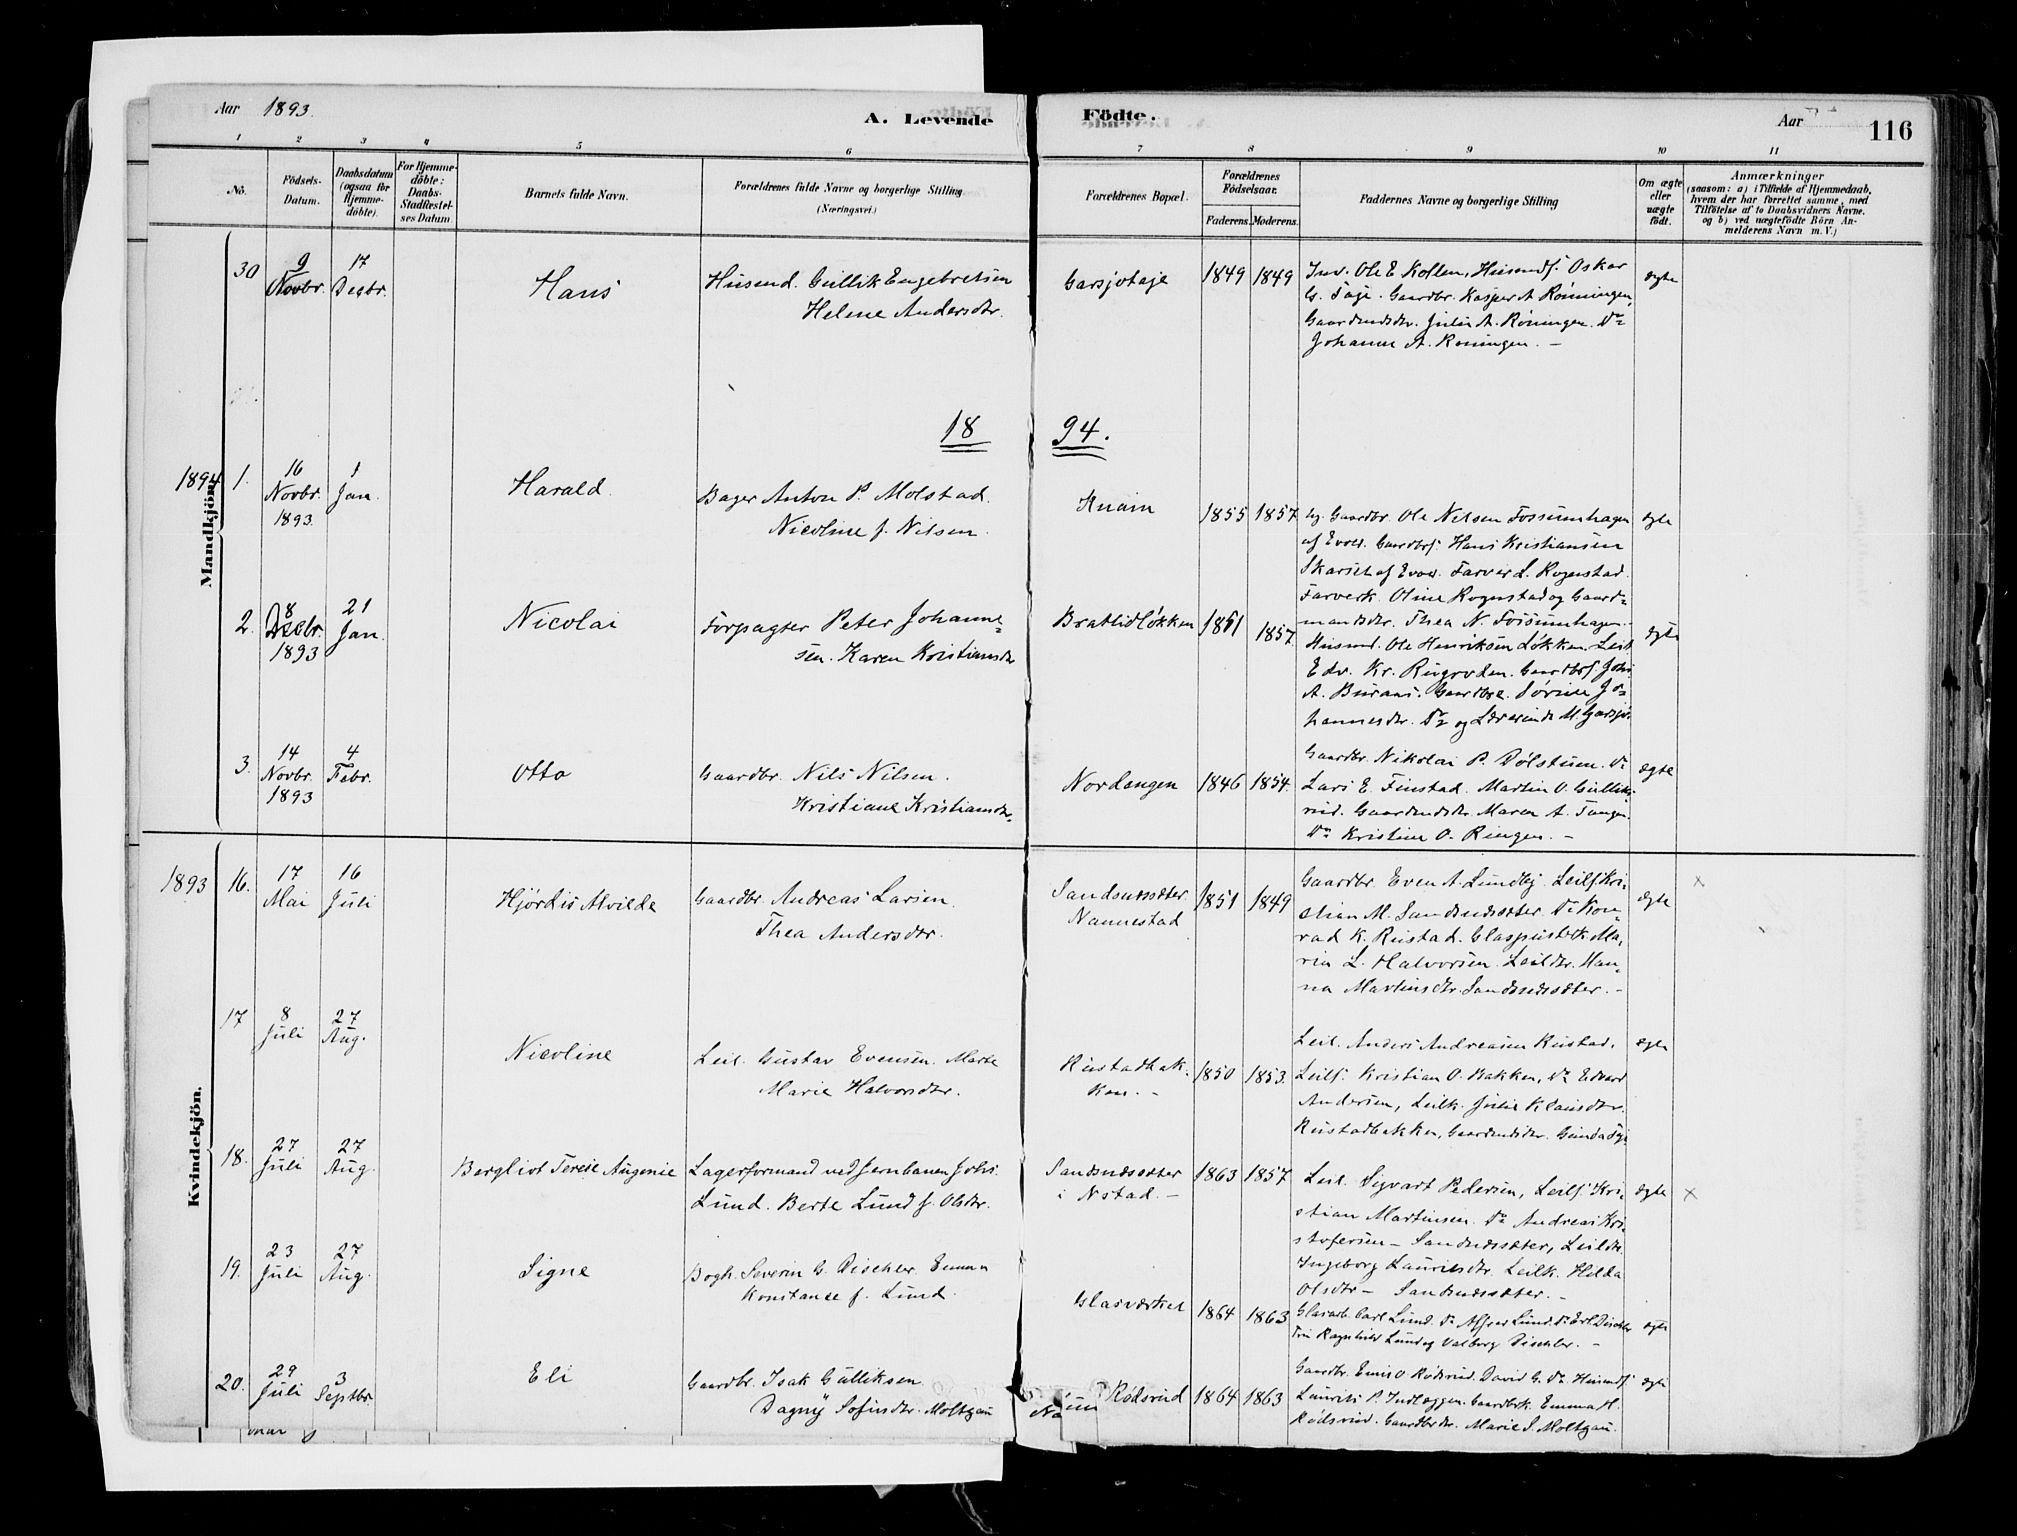 Aar 1893.
A. Levende Födte.
Aar
116
1 2 3 4 5 6 7 8 9 10 11
No.
Födsels-Datum.
Daabsdatum (ogsaa for Hjemme-döbte).
For Hjemme-döbte: Daabs-Stadfæstel-ses Datum
Barnets fulde Navn.
Forældrenes fulde Navne og borgerlige Stilling
(Næringsvei.)
Forældrenes Bopæl.
Forældrenes Födselsaar.
Faderens. Moderens.
Faddernes Navne og borgerlige Stilling
Om ægte eller uægte födt.
Anmærkninger
(saasom: a) i Tilfælde af Hjemmedaab, hvem der har forrettet samme, med Tilföielse af to Daabsvidners Navne, og b) ved uægtefödte Börn An-melderens Navn m. V.)
Mandkjön.
30 9 Novbr. 17 Decbr. Hans
Husmd. Gullik Engebretsen
Helene Andersdtr.
Garsjøtaje 1849 1849
Inv. Ole E. Kollen, Husmdf. Oskar
G. Taje. Gaardbr. Kasper A. Rönningen,
Gaardmdsdtr. Julie A. Röningen. Do
Johanne A. Roningen. –
ægte
1894.
1894 1. 16 Novbr. 1893. 1 Jan. Harald.
Bager Anton P. Molstad.
Nicoline f. Nilsen.
Knain 1855 1857
Gaardbr. Ole Nilsen Fossumhagen
af Hans Kristiansen
Farver L. Rogenstad.
Farverk. Oline Rogenstad og Gaard=
mandsdtr. Thea N. Fossumhagen.
ægte
2. 8 Decbr. 1893 21 Jan. Nicolai
Forpagter Peter Johanne=
sen. Karen Kristiansdtr
Bratlidløkken 1851 1857.
Husmd. Ole Henriksen Løkken. Leil.
Edv. Kr. Gaardbrf. Johs
A. Sørine Jo=
hannesdtr. Do og Lærerinde M. Garsjø.
ægte
3. 14 Novbr. 1893 4 Febr. Otto
Gaardbr. Nils Nilsen.
Kristiane Kristiansdtr.
Nordengen 1846 1854.
Gaardbr. Nikolai P. Dølstuen. Do
Lars E. Finstad. Martin O. Gulliks=
rud. Gaardmdsdtr. Maren A. Tangen.
Do Kristine O. Ringen. –
ægte
Kvindekjön.
1893 16. 17 Mai 16 Juli Hjørdis Alvilde
Gaardbr. Andreas Larsen.
Thea Andersdtr.
Sandsnessæter.
Nannestad 1851 1849
Gaardbr. Even A. Lundby. Leilf. Kri=
stian M. Sandsnessæter. Do Kon=
rad K. Rustad. Glaspusterk. Ma=
rin L. Halvorsen. Leildtr. Han=
na Martinsdtr. Sandsnessæter. –
ægte x
17 8 Juli 27 Aug. Nicoline
Leil. Gustav Evensen. Marte
Marie Halvorsdtr.
Rustadbak=
ken. – 1850 1853.
Leil. Anders Andreasen Rustad.
Leilf. Kristian O. Bakken, Do Edvard
Andersen, Leilk. Julie Klausdtr.
Rustadbakken, Gaardmdsdtr. Gunda
ægte
18. 27 Juli 27 Aug. Bergliot Terese Augenie
Lagerformand ved Jernbanen Johs.
Lund. Berte Lund f. Olsdtr.
Sandsnessæter
i Nstad. – 1863 1857
Leil. Sigvart Pedersen, Leilf. Kri=
stian Martinsen. Do Andreas Kri=
stofersen – Sandsnessæter, Leildtr.
Ingeborg Lauritsdtr. Leilk. Hilda
Olsdtr – Sandsnessæter. –
ægte x
19. 23 Juli 27 Aug. Signe
Bogh. Severin G. Dischler. Emma
Konstance f. Lund.
Glasværket 1864 1863
Glasarb. Carl Lund. Do Alfred Lund. Do Erl Dischler
Frk Ragnhild Lund og Valborg Dischler. –
ægte
20. 29 Juli 3 Septbr. Eli
Gaardbr. Isak Gulliksen
Dagny Sofiesdtr. Moltzau
Rødsrud 1864 1863
Gaardbr. Emil O Rødsrud. David G. Do Husmdf.
Laurits P. Gaardbrk. Emma H.
Rødsrud. Gaardbrdtr. Marie S. Moltzau.
ægte